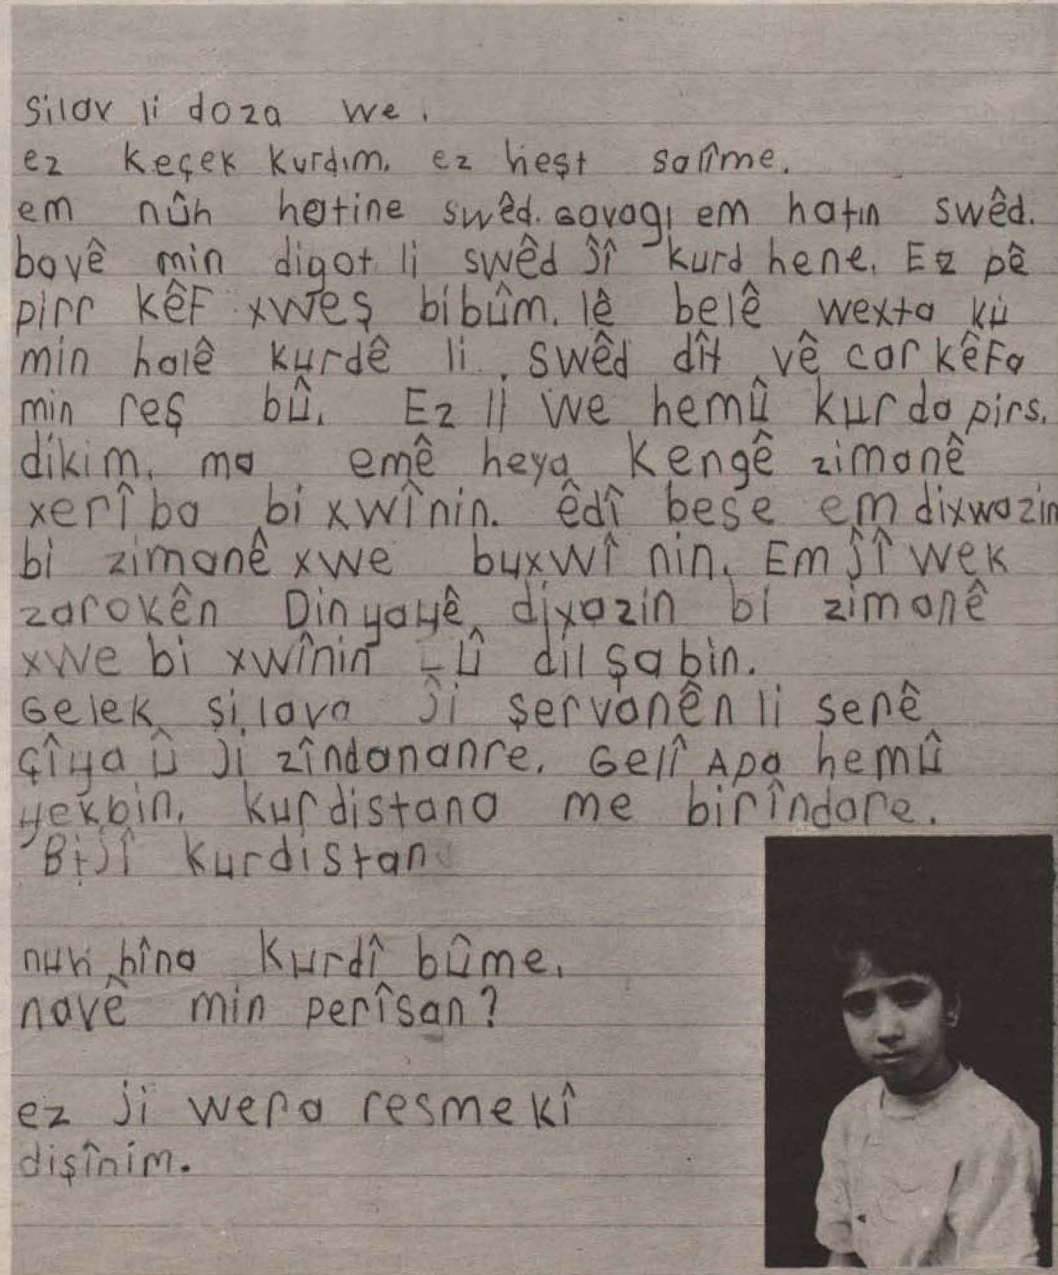 silav li doza we.
ez keçek kurdım. ez heşt salîme.
em nûh hatine swêd. gavagı em hatın swêd.
bavê min digot li swêd jî kurd hene. Ez pê
pirr kêf xweş bibûm. lê belê wexta ku
min halê kurdê li swêd dît vê car kêfa
min reş bû. Ez li we hemû kurda pirs.
dikim. ma emê heya kengê zimanê
xerîba bi xwînin. êdî bese em dixwazin
bi zimanê xwe buxwî nin. Em jî wek
zarokên Dinyayê dixazin bi zimanê
xwe bi xwînin û dil şabin.
Gelek silava ji şervanên li serê
çîya û ji zîndananre. Gelî Apa hemû
yekbin. kurdistana me birîndare.
Bijî kurdistan
nuh hîna kurdî bûme.
navê min perîsan?
ez ji wera resmekî
dişînim.